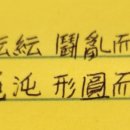 紜紜 鬪亂而
沌 形圓而